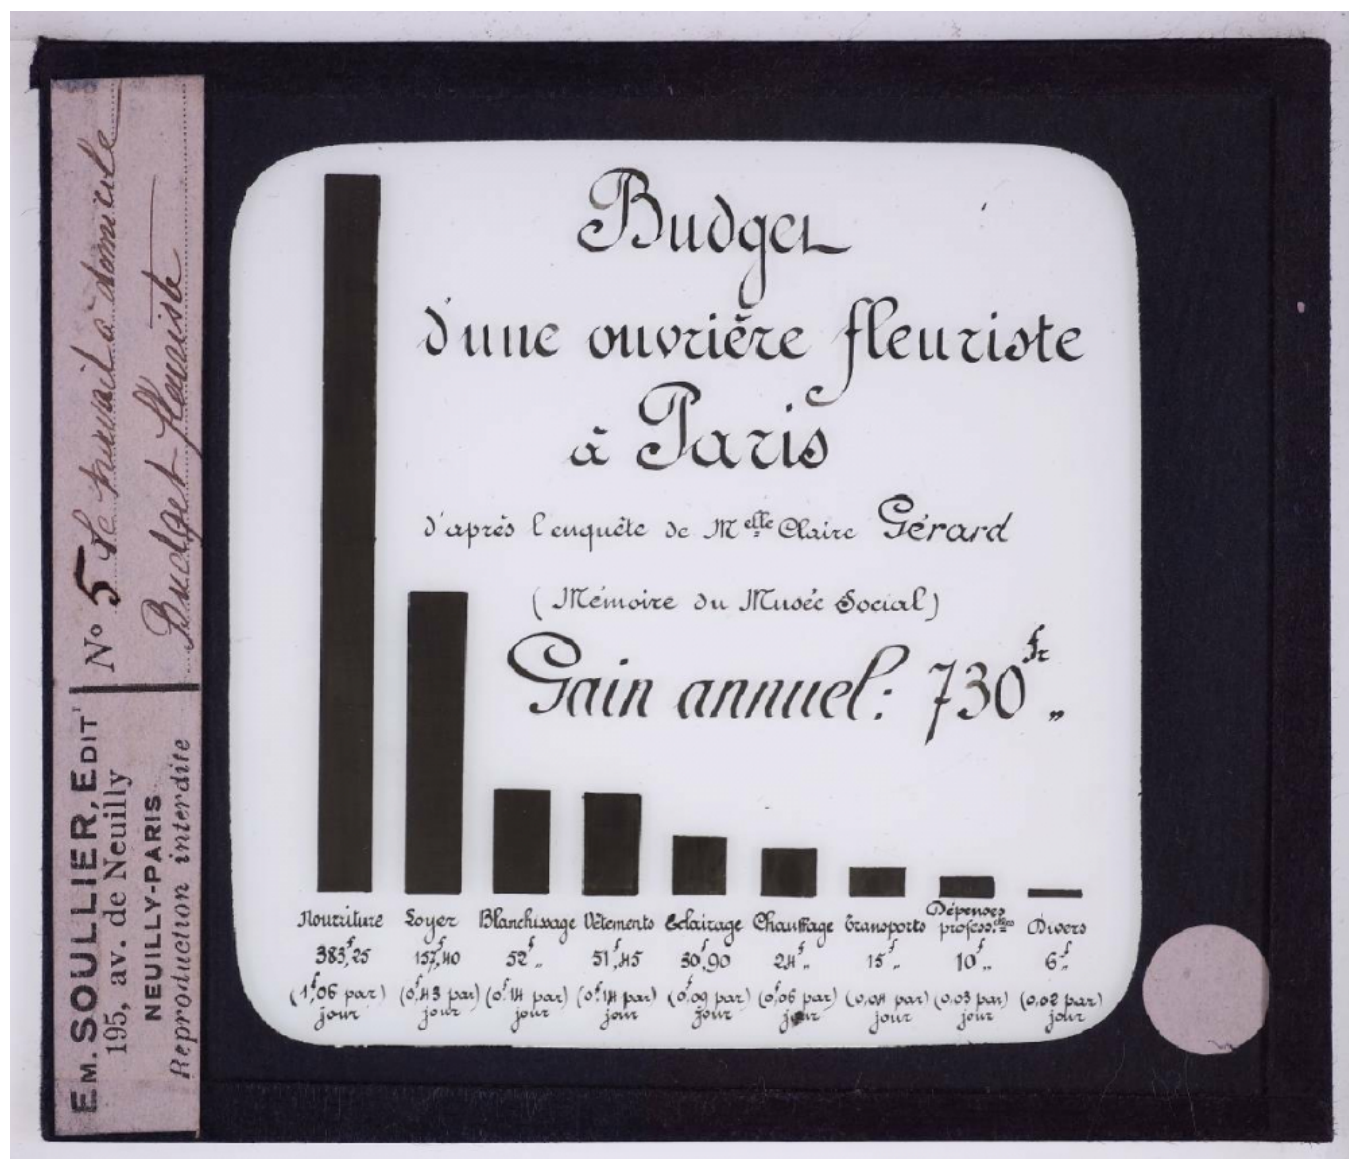 Em. SOULLIER, EDITr
195, av. de Neuilly
NEUILLY-PARIS
Reproduction interdite
No 5 Le travail à domicile
Budget fleuriste
Budget
d'une ouvrière fleuriste
à Paris
d'après l'enquête de Melle Claire Gérard
(Mémoire du Musée Social)
Gain annuel: 730fr „
Nourriture Loyer Blanchissage Vêtements Eclairage Chauffage Transports Dépenses profess.elles Divers
383f,25 157f,40 52f „ 51f,45 30f,90 24f „ 15f „ 10f „ 6f „
(1f,06 par jour) (0f,43 par jour) (0f,14 par jour) (0f,14 par jour) (0f,09 par jour) (0f,06 par jour) (0,04 par jour) (0,03 par jour) (0,02 par jour)